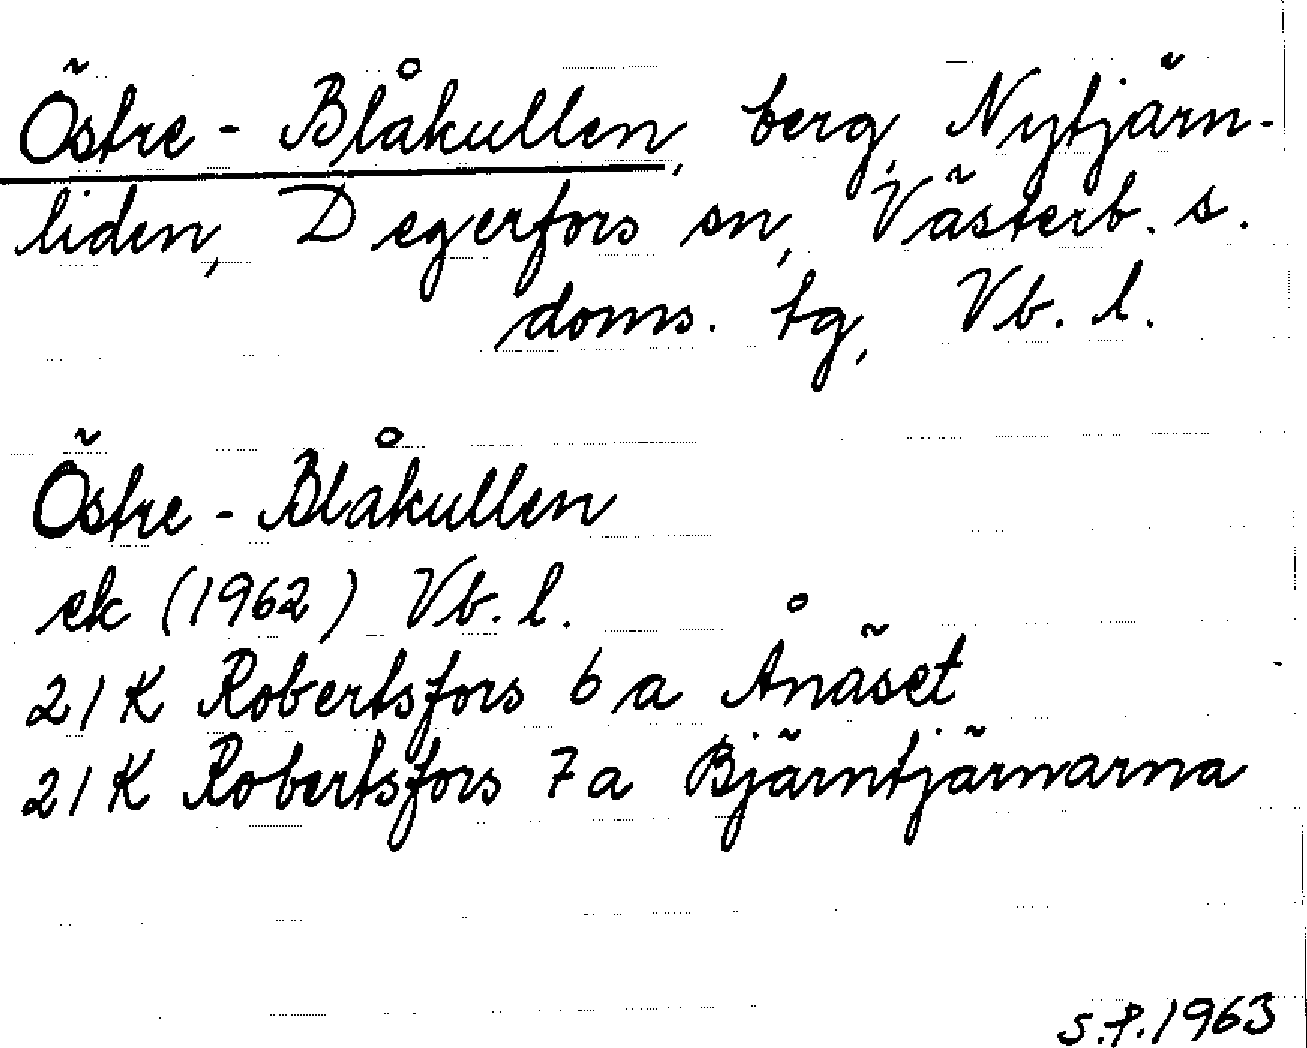 Östre - Blåkullen, berg, Nytjärn-
liden, Degerfors sn, Västerb. s.
doms. tg, Vb. l.
Östre - Blåkullen
ek (1962) Vb. l.
21 K Robertsfors 6 a Ånäset
21 K Robertsfors 7 a Bjärntjärnarna
S.P. 1963